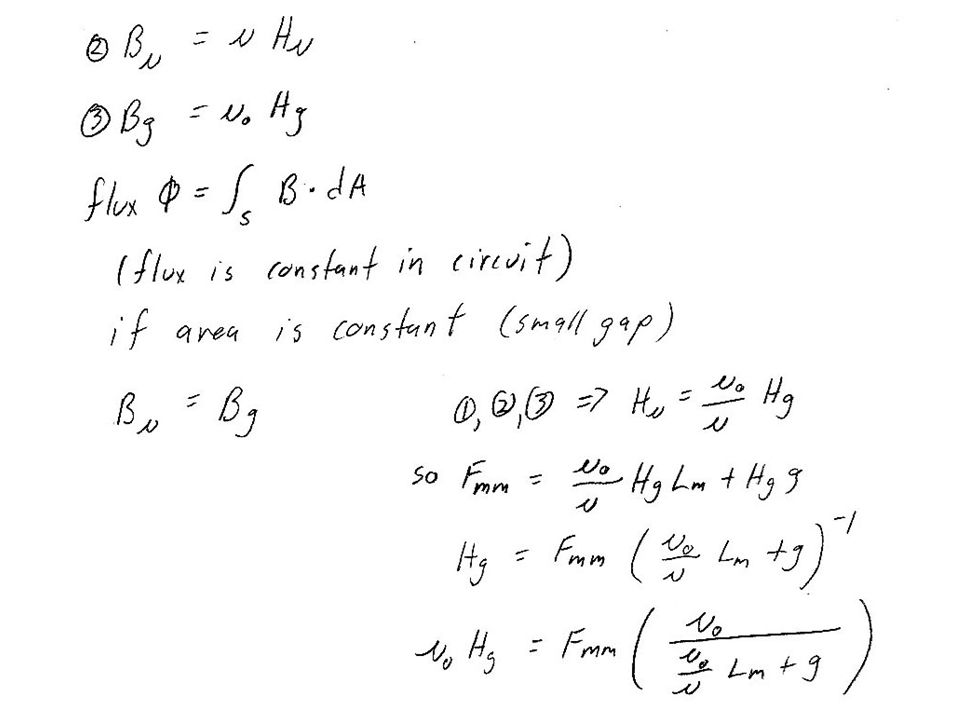 ② Bμ = μ Hμ
③ Bg = μ₀ Hg
flux Φ = ∫s B · dA
(flux is constant in circuit)
if area is constant (small gap)
Bμ = Bg
①, ②, ③ => Hμ = μ₀/μ Hg
so Fmm = μ₀/μ Hg Lm + Hg g
Hg = Fmm (μ₀/μ Lm + g)⁻¹
μ₀ Hg = Fmm (μ₀ / (μ₀/μ Lm + g))